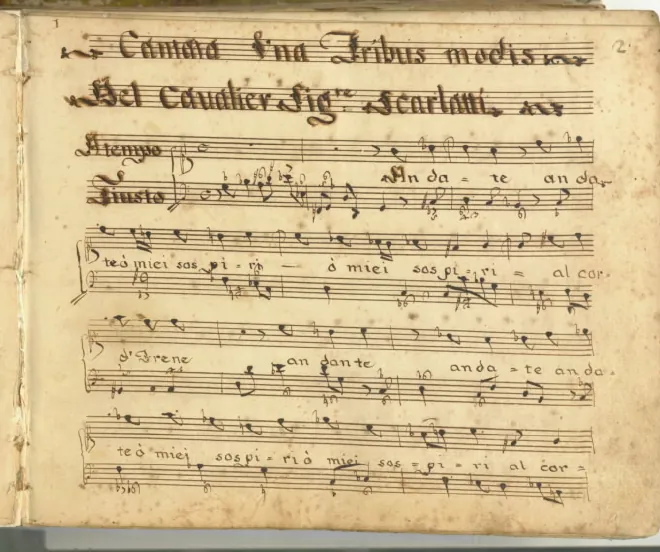 1
2.
Cantata Una Tribus modis
Del Cavalier Sigre Scarlatti.
A tempo
Giusto
An da = te an da =
te ò miei sos pi = ri — ò miei sos pi = ri = al cor.
d'Irene an dan te an da = te an da .
te ò miej sos pi = ri ò miej sos = pi = ri al cor =